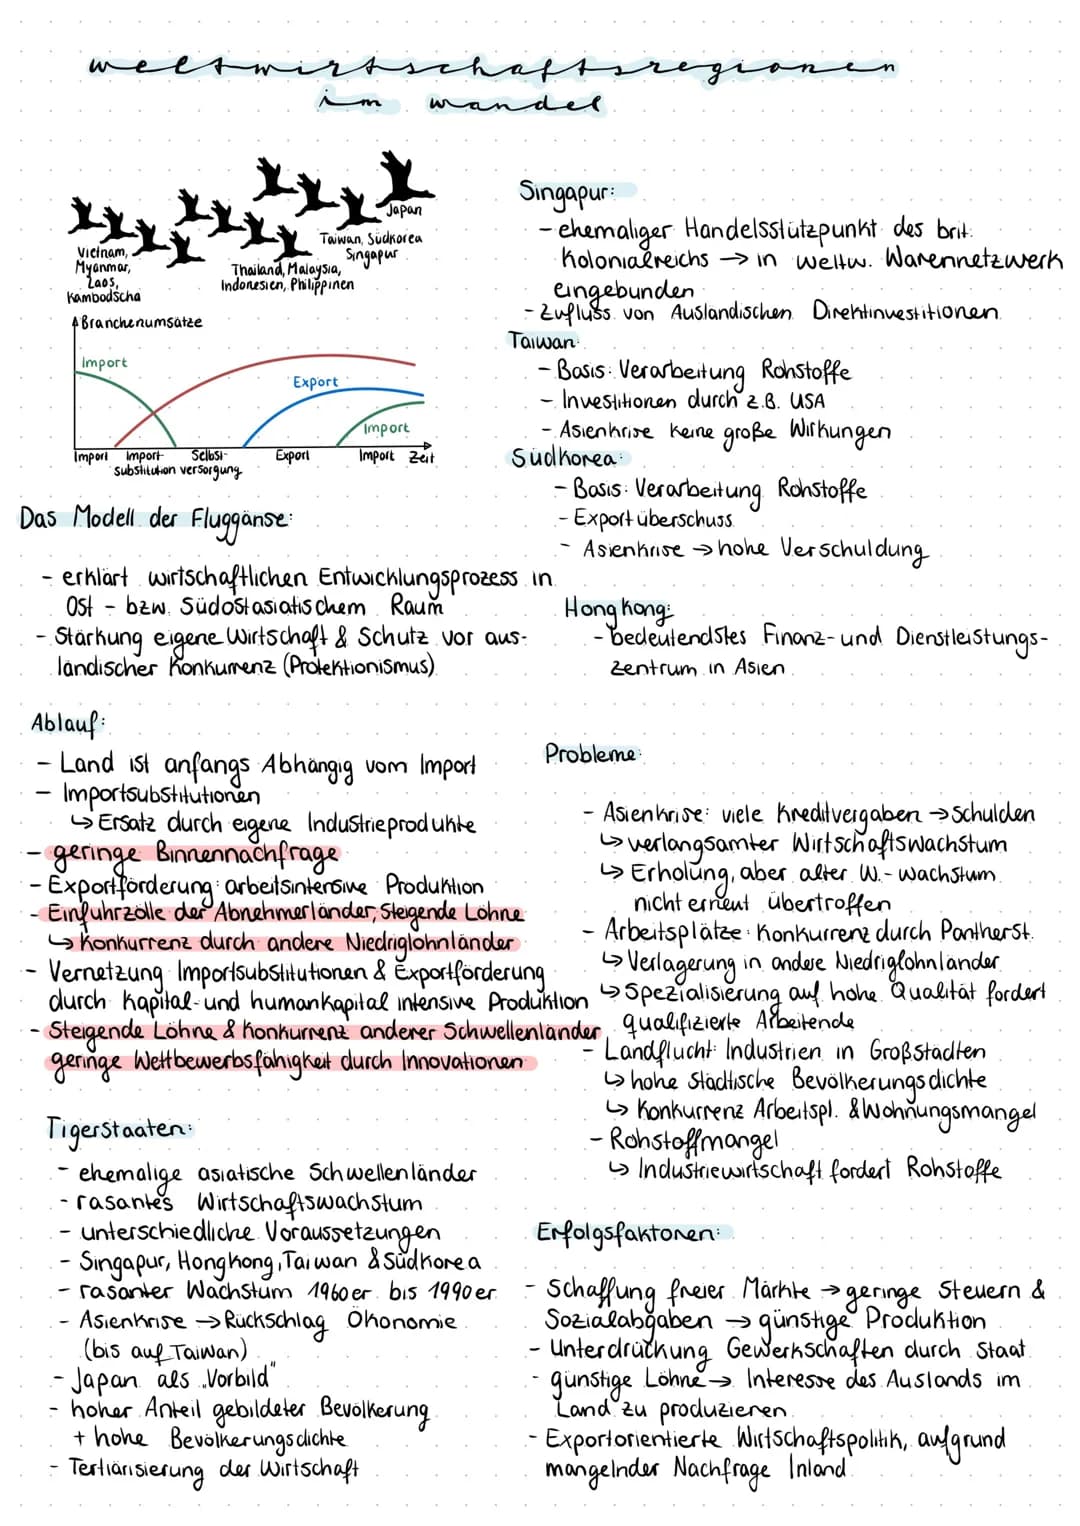 weltwirtschaftsregionen
im wandel
Japan
Taiwan, Südkorea
Singapur
Thailand, Malaysia,
Indonesien, Philippinen
Vietnam,
Myanmar,
Laos,
Kambodscha
Branchenumsätze
Import
Export
Import
Import Import- Selbst- Export Import Zeit
substitution versorgung
Das Modell der Fluggänse:
- erklärt wirtschaftlichen Entwicklungsprozess in
Ost - bzw. Südostasiatischem Raum
- Stärkung eigene Wirtschaft & Schutz vor aus-
ländischer Konkurrenz (Protektionismus)
Ablauf:
- Land ist anfangs Abhängig vom Import
- Importsubstitutionen
↳ Ersatz durch eigene Industrieprodukte
- geringe Binnennachfrage
- Exportförderung: arbeitsintensive Produktion
- Einfuhrzölle der Abnehmerländer, Steigende Löhne
↳ Konkurrenz durch andere Niedriglohnländer
- Vernetzung Importsubstitutionen & Exportförderung
durch Kapital- und humankapital intensive Produktion
- Steigende Löhne & Konkurrenz anderer Schwellenländer
geringe Wettbewerbsfähigkeit durch Innovationen
Tigerstaaten:
- ehemalige asiatische Schwellenländer
- rasantes Wirtschaftswachstum
- unterschiedliche Voraussetzungen
- Singapur, Hongkong, Taiwan & Südkorea
- rasanter Wachstum 1960er bis 1990er
- Asienkrise → Rückschlag Ökonomie
(bis auf Taiwan)
- Japan als „Vorbild"
- hoher Anteil gebildeter Bevölkerung
+ hohe Bevölkerungsdichte
- Tertiärisierung der Wirtschaft
Singapur:
- ehemaliger Handelsstützpunkt des brit.
Kolonialreichs → in weltw. Warennetzwerk
eingebunden
- Zufluss von Ausländischen Direktinvestitionen
Taiwan:
- Basis: Verarbeitung Rohstoffe
- Investitionen durch z.B. USA
- Asienkrise keine große Wirkungen
Südkorea:
- Basis: Verarbeitung Rohstoffe
- Exportüberschuss
- Asienkrise → hohe Verschuldung
Hongkong:
- bedeutendstes Finanz- und Dienstleistungs-
zentrum in Asien
Probleme:
- Asienkrise: viele Kreditvergaben → Schulden
↳ verlangsamter Wirtschaftswachstum
↳ Erholung, aber alter W.- wachstum
nicht erneut übertroffen
- Arbeitsplätze: Konkurrenz durch Pantherst.
↳ Verlagerung in andere Niedriglohnländer
↳ Spezialisierung auf hohe Qualität fordert
qualifizierte Arbeitende
- Landflucht: Industrien in Großstädten
↳ hohe städtische Bevölkerungsdichte
↳ Konkurrenz Arbeitspl. & Wohnungsmangel
- Rohstoffmangel
↳ Industriewirtschaft fordert Rohstoffe
Erfolgsfaktoren:
- Schaffung freier Märkte → geringe Steuern &
Sozialabgaben → günstige Produktion
- Unterdrückung Gewerkschaften durch Staat
- günstige Löhne → Interesse des Auslands im
Land zu produzieren
- Exportorientierte Wirtschaftspolitik, aufgrund
mangelnder Nachfrage Inland